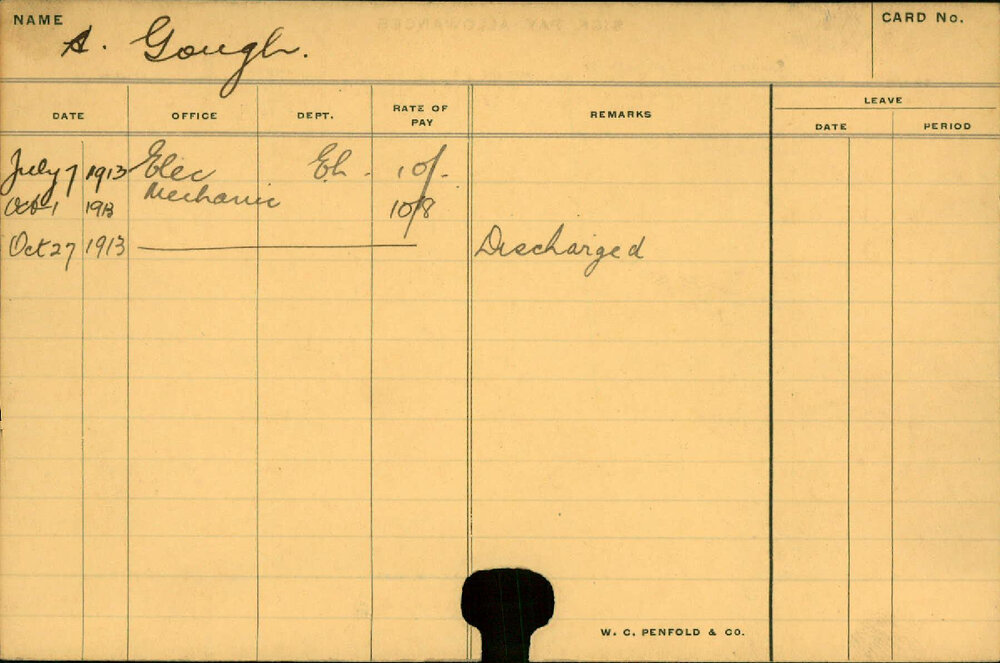 NAME A. Gough. CARD No.
LEAVE
DATE OFFICE DEPT. RATE OF PAY REMARKS DATE PERIOD
July 7 1913 Elec Eh. 10/-
Oct 1 1913 Mechanic 10/8
Oct 27 1913 Discharged
W. C. PENFOLD & CO.